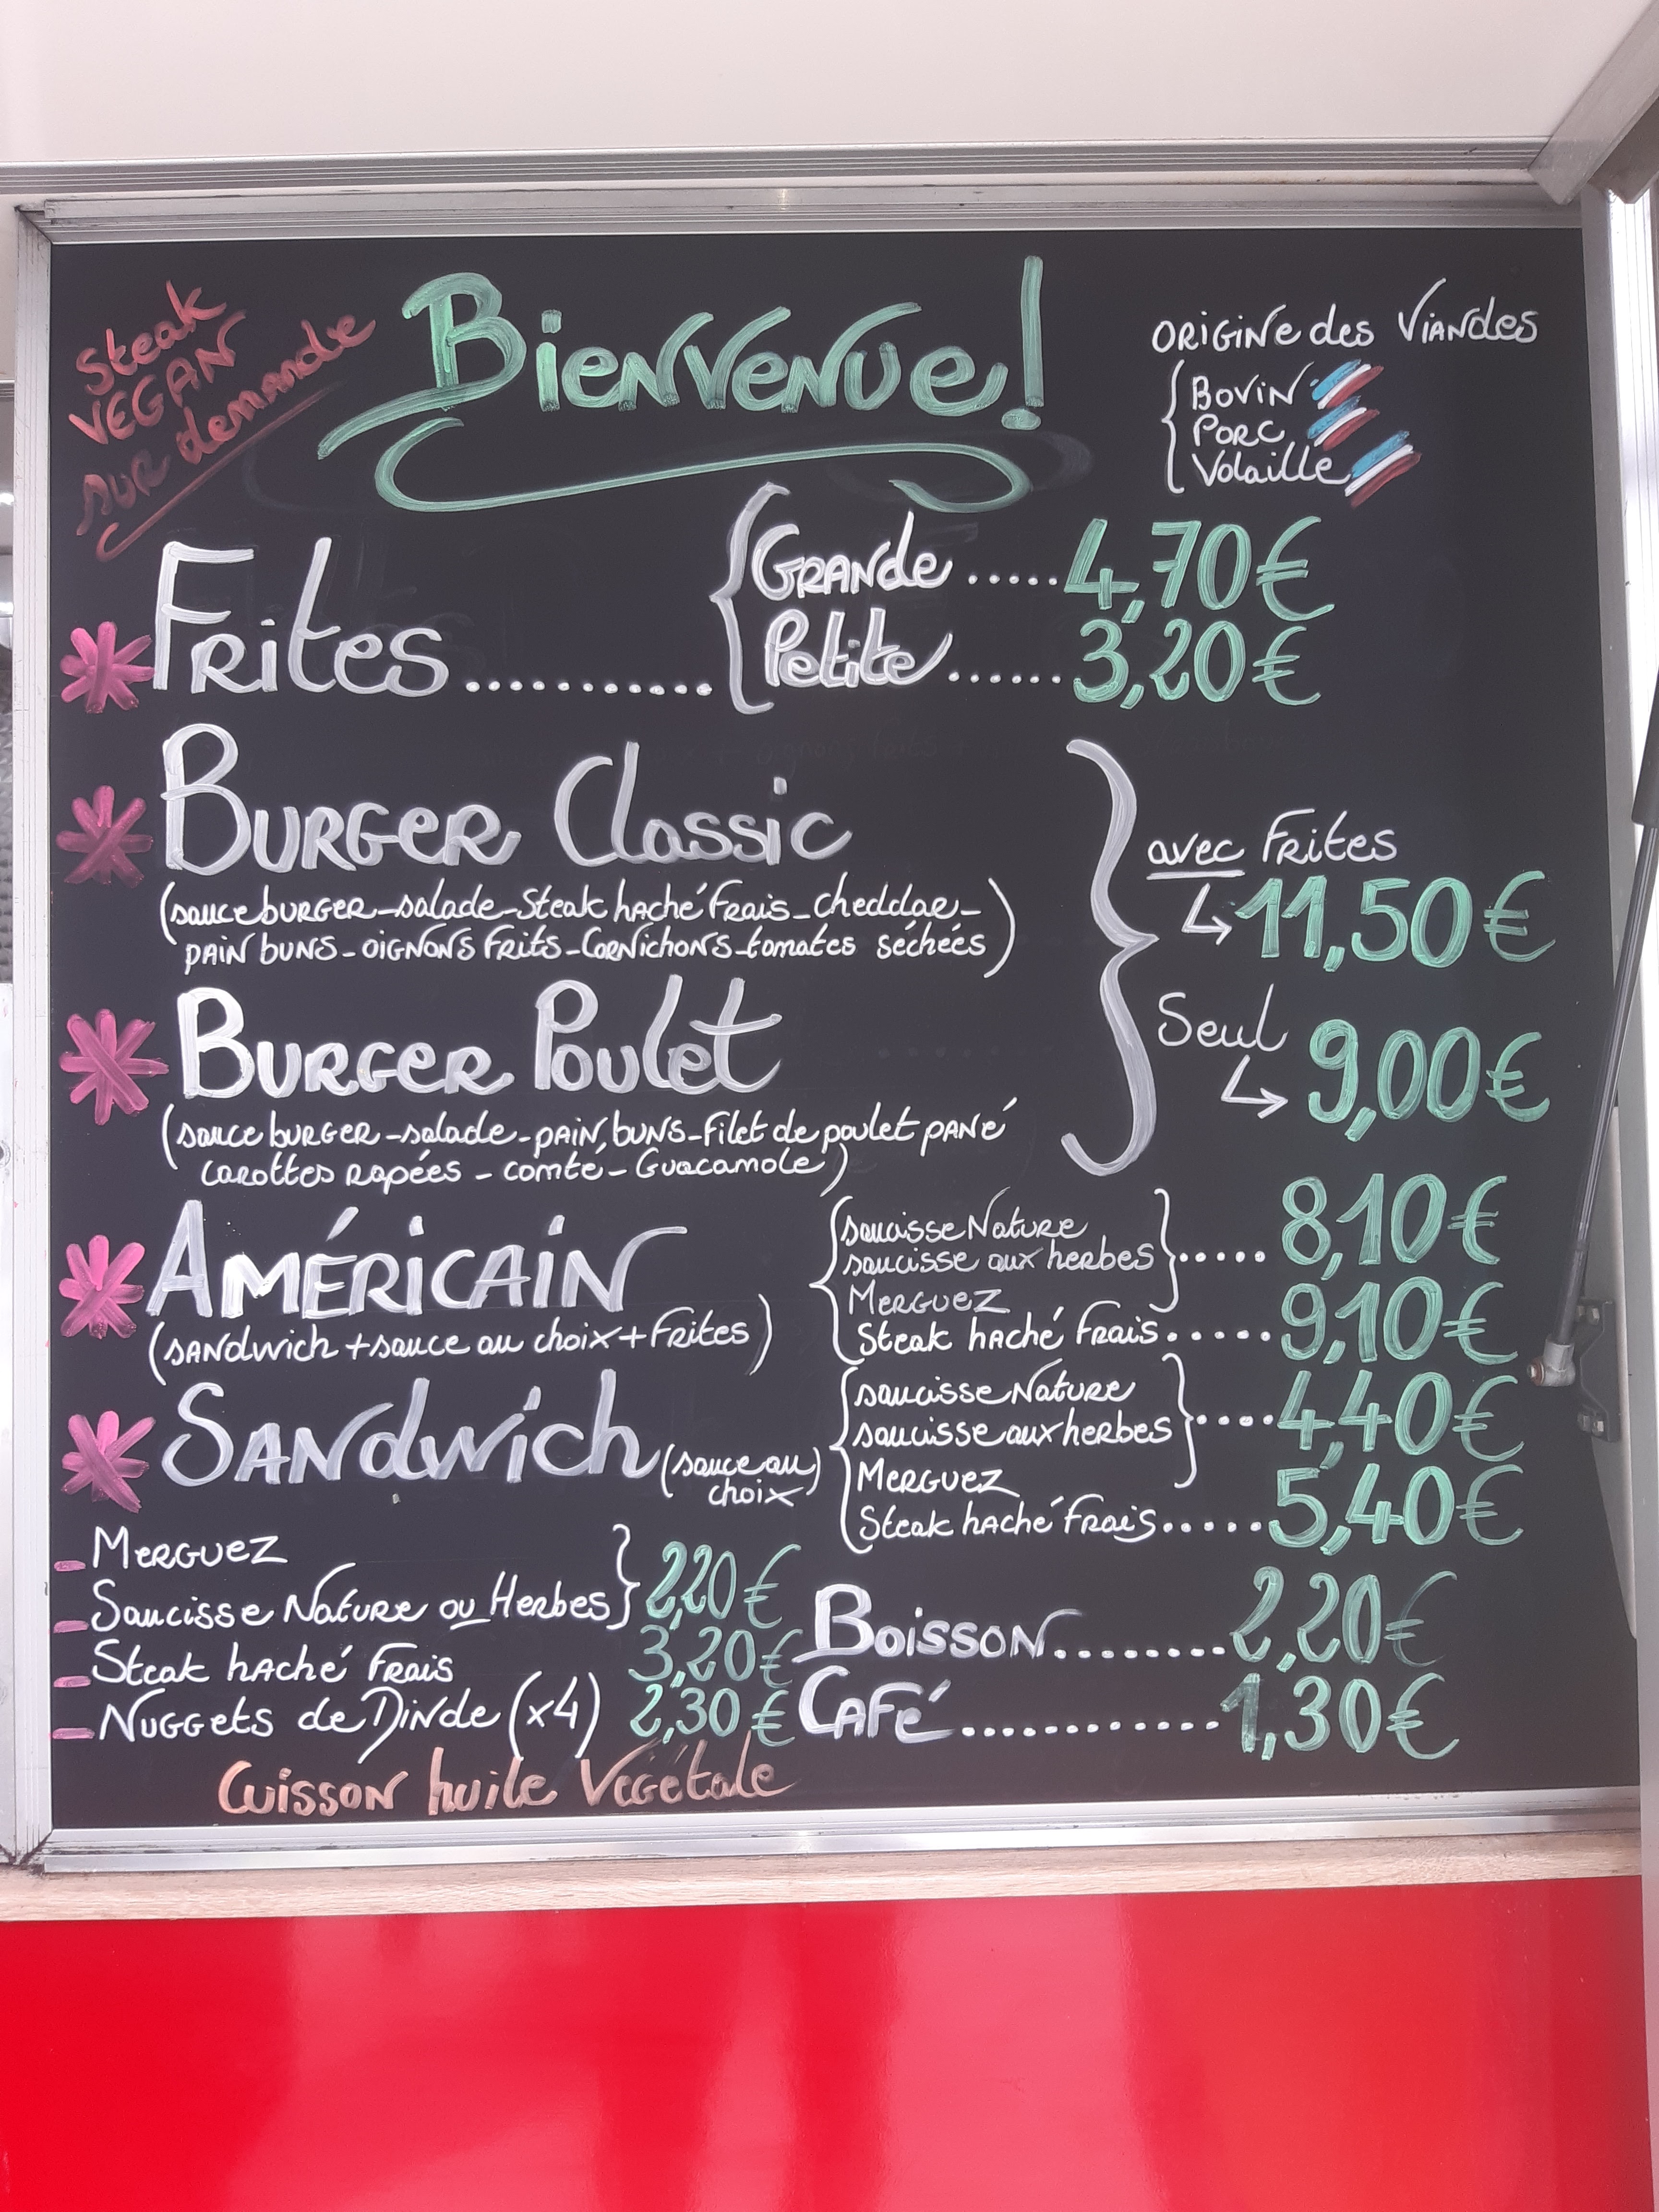 Steak
VEGAN
sur demande
Bienvenue!
ORIGINE des Viandes
Bovin
Porc
Volaille
Frites...........
Grande.....4,70€
Petite......3,20€
Burger Classic
(sauce burger_salade_Steak haché Frais_cheddar_
pain buns_oignons frits_Cornichons_tomates séchées)
avec Frites
↳11,50€
Burger Poulet
(sauce burger_salade_pain buns_Filet de poulet pané
carottes rapées_comté_Guacamole)
Seul
↳9,00€
Américain
(sandwich + sauce au choix + Frites)
saucisse Nature
saucisse aux herbes.....8,10€
Merguez
Steak haché Frais.....9,10€
Sandwich (sauce au
choix)
saucisse Nature
saucisse aux herbes....4,40€
Merguez
Steak haché Frais.....5,40€
_Merguez
_Saucisse Nature ou Herbes 2,20€
_Steak haché Frais 3,20€
_Nuggets de Dinde (x4) 2,30€
Boisson........2,20€
Café............1,30€
Cuisson huile Végétale